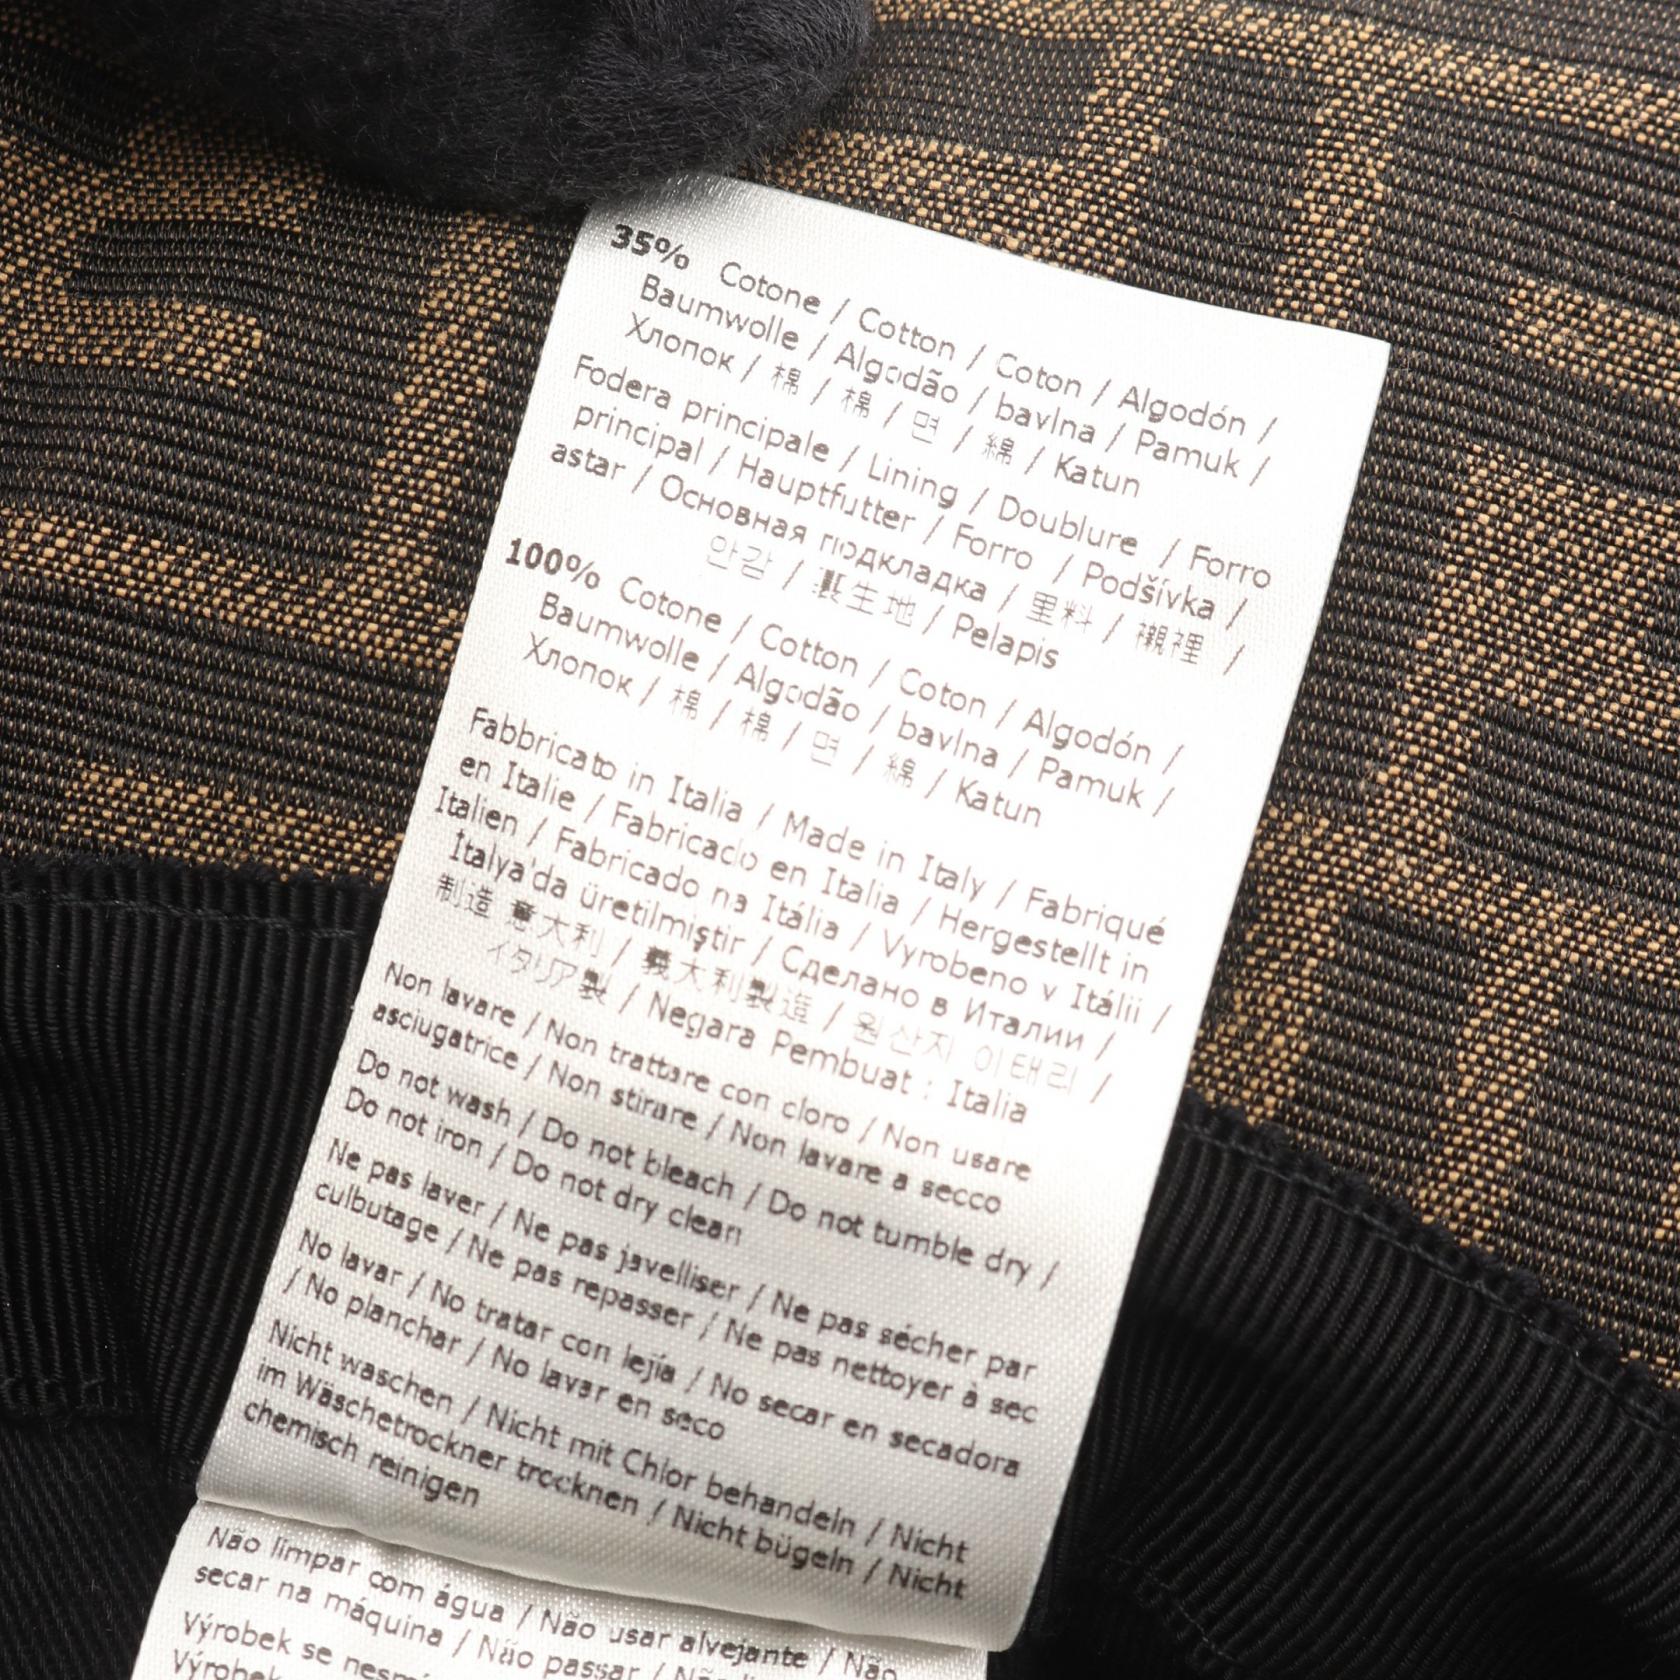 35% Cotone / Cotton / Coton / Algodón /
Baumwolle / Algodão / bavlna / Pamuk /
Хлопок / 棉 / 棉 / 면 / 綿 / Katun
Fodera principale / Lining / Doublure / Forro
principal / Hauptfutter / Forro / Podšívka /
astar / Основная подкладка / 里料 / 襯裡 /
안감 / 裏生地 / Pelapis
100% Cotone / Cotton / Coton / Algodón /
Baumwolle / Algodão / bavlna / Pamuk /
Хлопок / 棉 / 棉 / 면 / 綿 / Katun
Fabbricato in Italia / Made in Italy / Fabriqué
en Italie / Fabricado en Italia / Hergestellt in
Italien / Fabricado na Itália / Vyrobeno v Itálii /
Italya'da üretilmiştir / Сделано в Италии /
制造 意大利 / 義大利製造 / 원산지 이태리 /
イタリア製 / Negara Pembuat : Italia
Non lavare / Non trattare con cloro / Non usare
asciugatrice / Non stirare / Non lavare a secco
Do not wash / Do not bleach / Do not tumble dry /
Do not iron / Do not dry clean
Ne pas laver / Ne pas javelliser / Ne pas sécher par
culbutage / Ne pas repasser / Ne pas nettoyer à sec
No lavar / No tratar con lejía / No secar en secadora
/ No planchar / No lavar en seco
Nicht waschen / Nicht mit Chlor behandeln / Nicht
im Wäschetrockner trocknen / Nicht bügeln / Nicht
chemisch reinigen
Não limpar com água / Não usar alvejante / Não
secar na máquina / Não passar / Não
Výrobek se
Výrobek